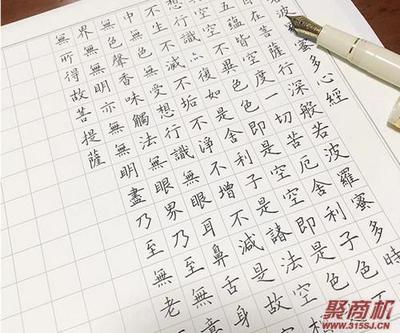 波羅蜜多心經
在菩薩行深般若波羅蜜多時
五蘊皆空度一切苦厄舍利子色不
空空不異色色即是空
識亦復如是舍利子是諸法空相
不生不滅不垢不淨不增不減是故空
中無色無受想行識無眼耳鼻舌身意
無色聲香味觸法無眼界乃至無
界無無明亦無無明盡乃至無老
無所得故菩提薩
聚商机
WWW.315SJ.CN